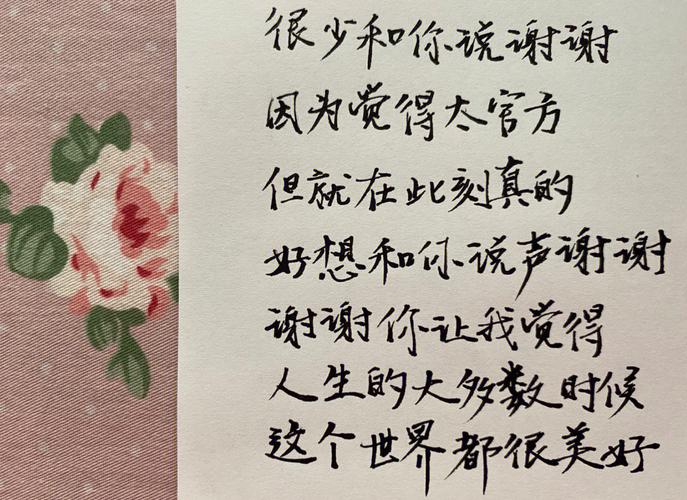 很少和你说谢谢
因为觉得太官方
但就在此刻真的
好想和你说声谢谢
谢谢你让我觉得
人生的大多数时候
这个世界都很美好